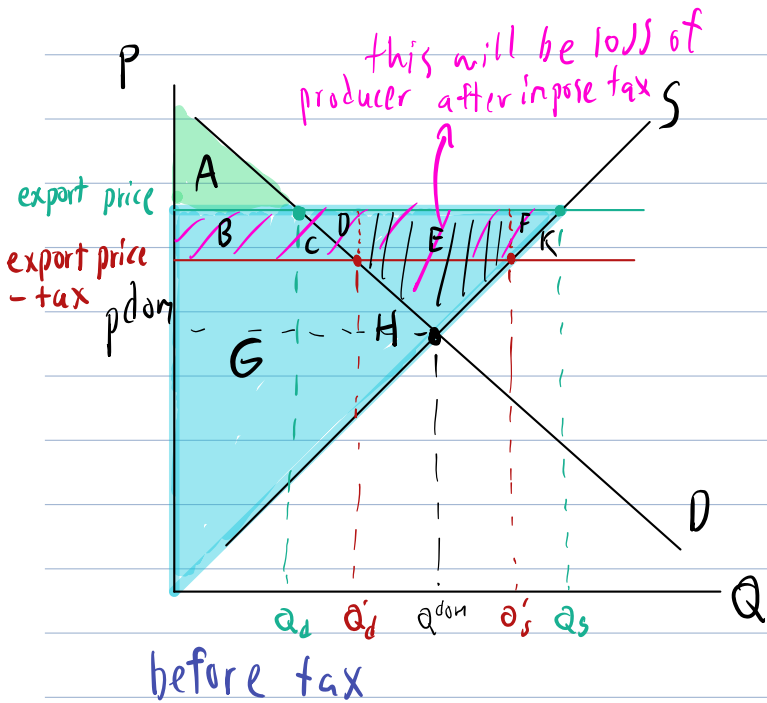 this will be loss of
producer after inpose tax
P
S
A
export price
B
C
D
E
F
K
export price
- tax
pdom
H
G
D
Qd
Q'd
Qdom
Q's
Qs
Q
before tax